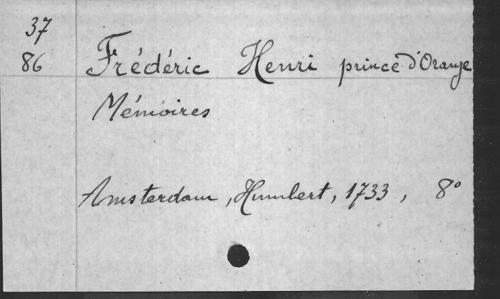 37
86 Frédéric Henri prince d'Orange
Mémoires
Amsterdam, Humbert, 1733, 8°